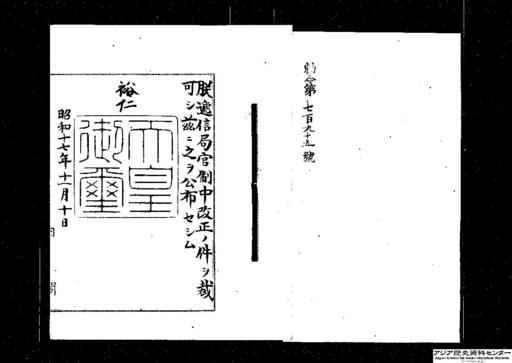 勅令第七百九十五號
朕逓信局官制中改正ノ件ヲ裁
可シ茲ニ之ヲ公布セシム
裕仁
天皇
御璽
昭和十七年十一月十日
内
閣
アジア歴史資料センター
Japan Center for Asian Historical Records